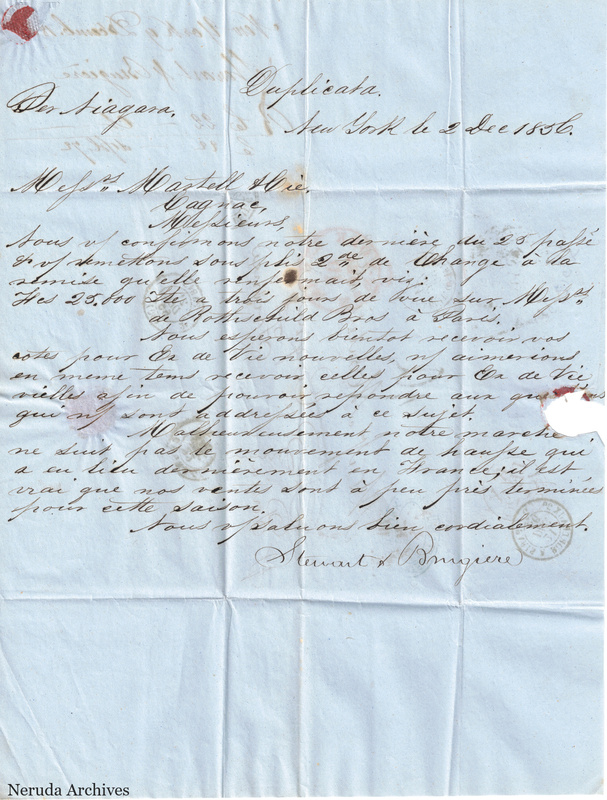 Duplicata.
Per Niagara.
New York le 2 Dec 1856.
Messrs. Martell & Cie.
Cognac,
Messieurs,
Nous v/ confirmons notre dernière du 25 passé
& v/ remettons sous pli 2de de Change à la
remise qu'elle renfermait, viz:
Fcs 25.000 Ste a trois jours de vue sur Messrs.
de Rothschild Bros à Paris.
Nous esperons bientot recevoir vos
cotes pour Ex de Vie nouvelles, n/ aimerions
en meme tems recevoir celles pour Ex de Vie
vielles afin de pouvoir repondre aux
qui n/ sont addressées à ce sujet.
Malheureusement notre marché
ne suit pas le mouvement de hausse qui
a eu lieu dernièrement en France; il est
vrai que nos ventes sont à peu près terminées
pour cette saison.
Nous v/ saluons bien cordialement.
Stewart & Brugiere
Neruda Archives